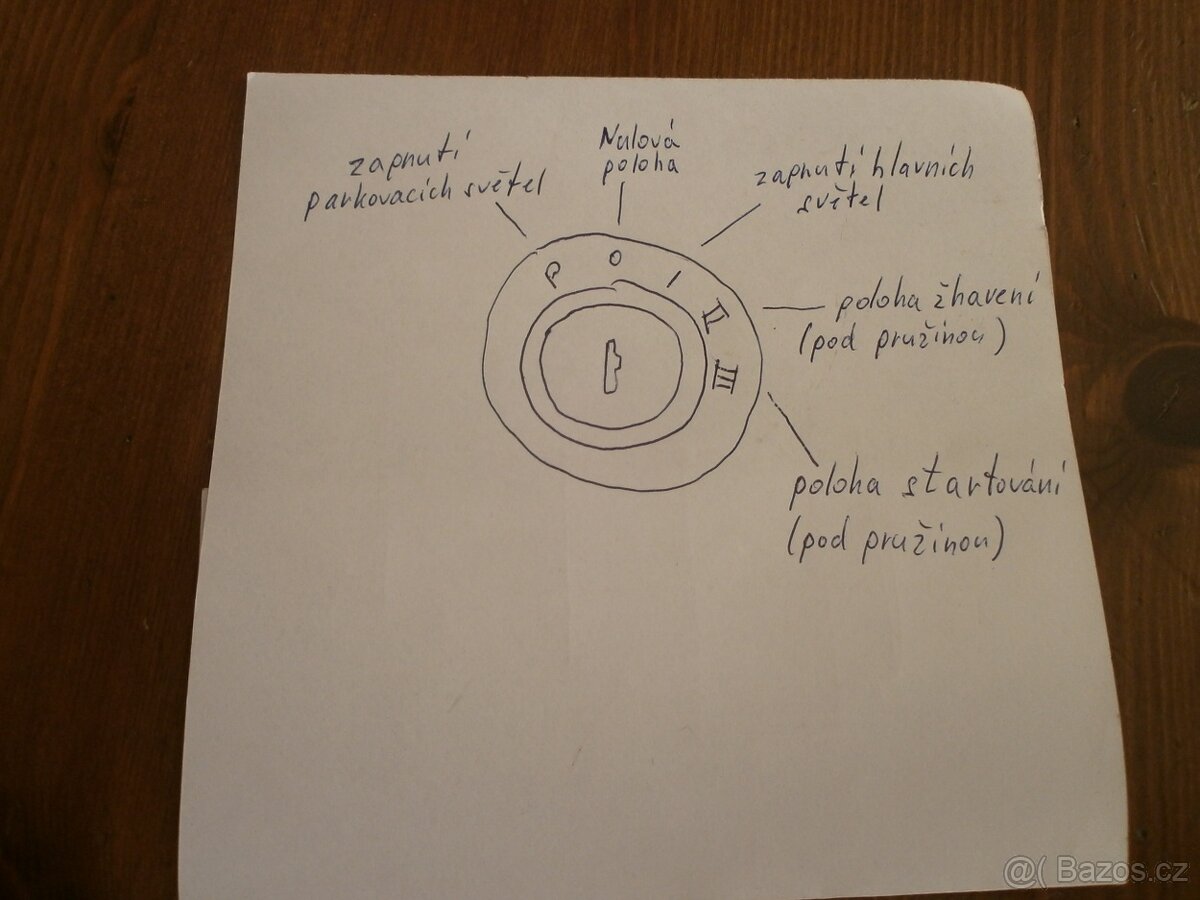 zapnutí
parkovacích světel
Nulová
poloha
zapnutí hlavních
světel
P O I II III
poloha žhavení
(pod pružinou)
poloha startování
(pod pružinou)
@( Bazos.cz